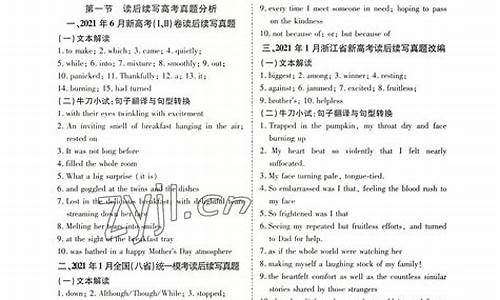 第一节 读后续写高考真题分析
一、2021 年 6 月新高考(Ⅰ,Ⅱ)卷读后续写真题
(一)文本解读
1. to make; 2. which; 3. came; 4. quietly;
5. while; 6. into; 7. mixture; 8. smoothly; 9. out;
10. panicked; 11. Thankfully; 12. a; 13. it;
14. burning; 15. had turned
(二)牛刀小试:句子翻译与句型转换
1. with their eyes twinkling with excitement
2. An inviting smell of breakfast hanging in the air;
rested on
3. It was not long before
4. filled the whole room
5. What a big surprise (it is)
6. and goggled at the twins and the dishes
7. Lost in the delicious breakfast, with delightful tears
streaming down her face
8. Melting her tears into smiles
9. at the sight of the breakfast tray
10. was bathed in a happy Mother's Day atmosphere
二、2021 年 1 月全国(八省)统一模考读后续写真题
(一)文本解读
1. down; 2. Although/Though/While; 3. stopped;
9. every time I meet someone in need; hoping to pass
on the kindness
10. not because of; or; but because of
三、2021 年 1 月浙江省新高考读后续写真题改编
(一)文本解读
1. biggest; 2. among; 3. winner; 4. resting;
5. against; 6. jammed; 7. excited; 8. fruitless;
9. brother's; 10. helpless
(二)牛刀小试:句子翻译与句型转换
1. Trapped in the pumpkin, my throat dry and face
burning up
2. My heart beat so violently that I felt nearly
suffocated.
3. My face turning pale, tongue-tied.
4. So embarrassed was I that, feeling the blood rush to
my face
5. So frightened was I that
6. Seeing my repeated but fruitless efforts, and turned
to Dad for help.
7. as if the whole world were watching her
8. making myself a laughing stock of my family!
9. the heartfelt comfort as well as the countless similar
stories shared by those strangers
zyjl.cn